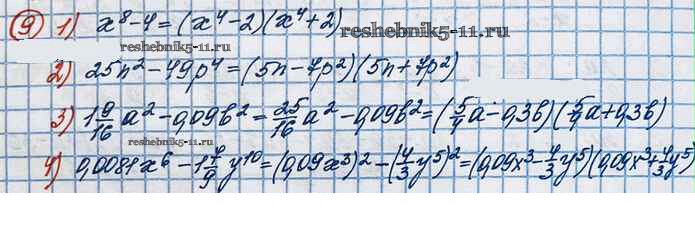 9 1) x⁸-4=(x⁴-2)(x⁴+2)
reshebnik5-11.ru
reshebnik5-11.ru
2) 25n²-49p⁴=(5n-7p²)(5n+7p²)
3) 1 9/16 a²-0,09b²=25/16 a²-0,09b²=(5/4 a-0,3b)(5/4 a+0,3b)
reshebnik5-11.ru
4) 0,0081x⁶-1 7/9 y¹⁰=(0,09x³)²-(4/3 y⁵)²=(0,09x³-4/3 y⁵)(0,09x³+4/3 y⁵)